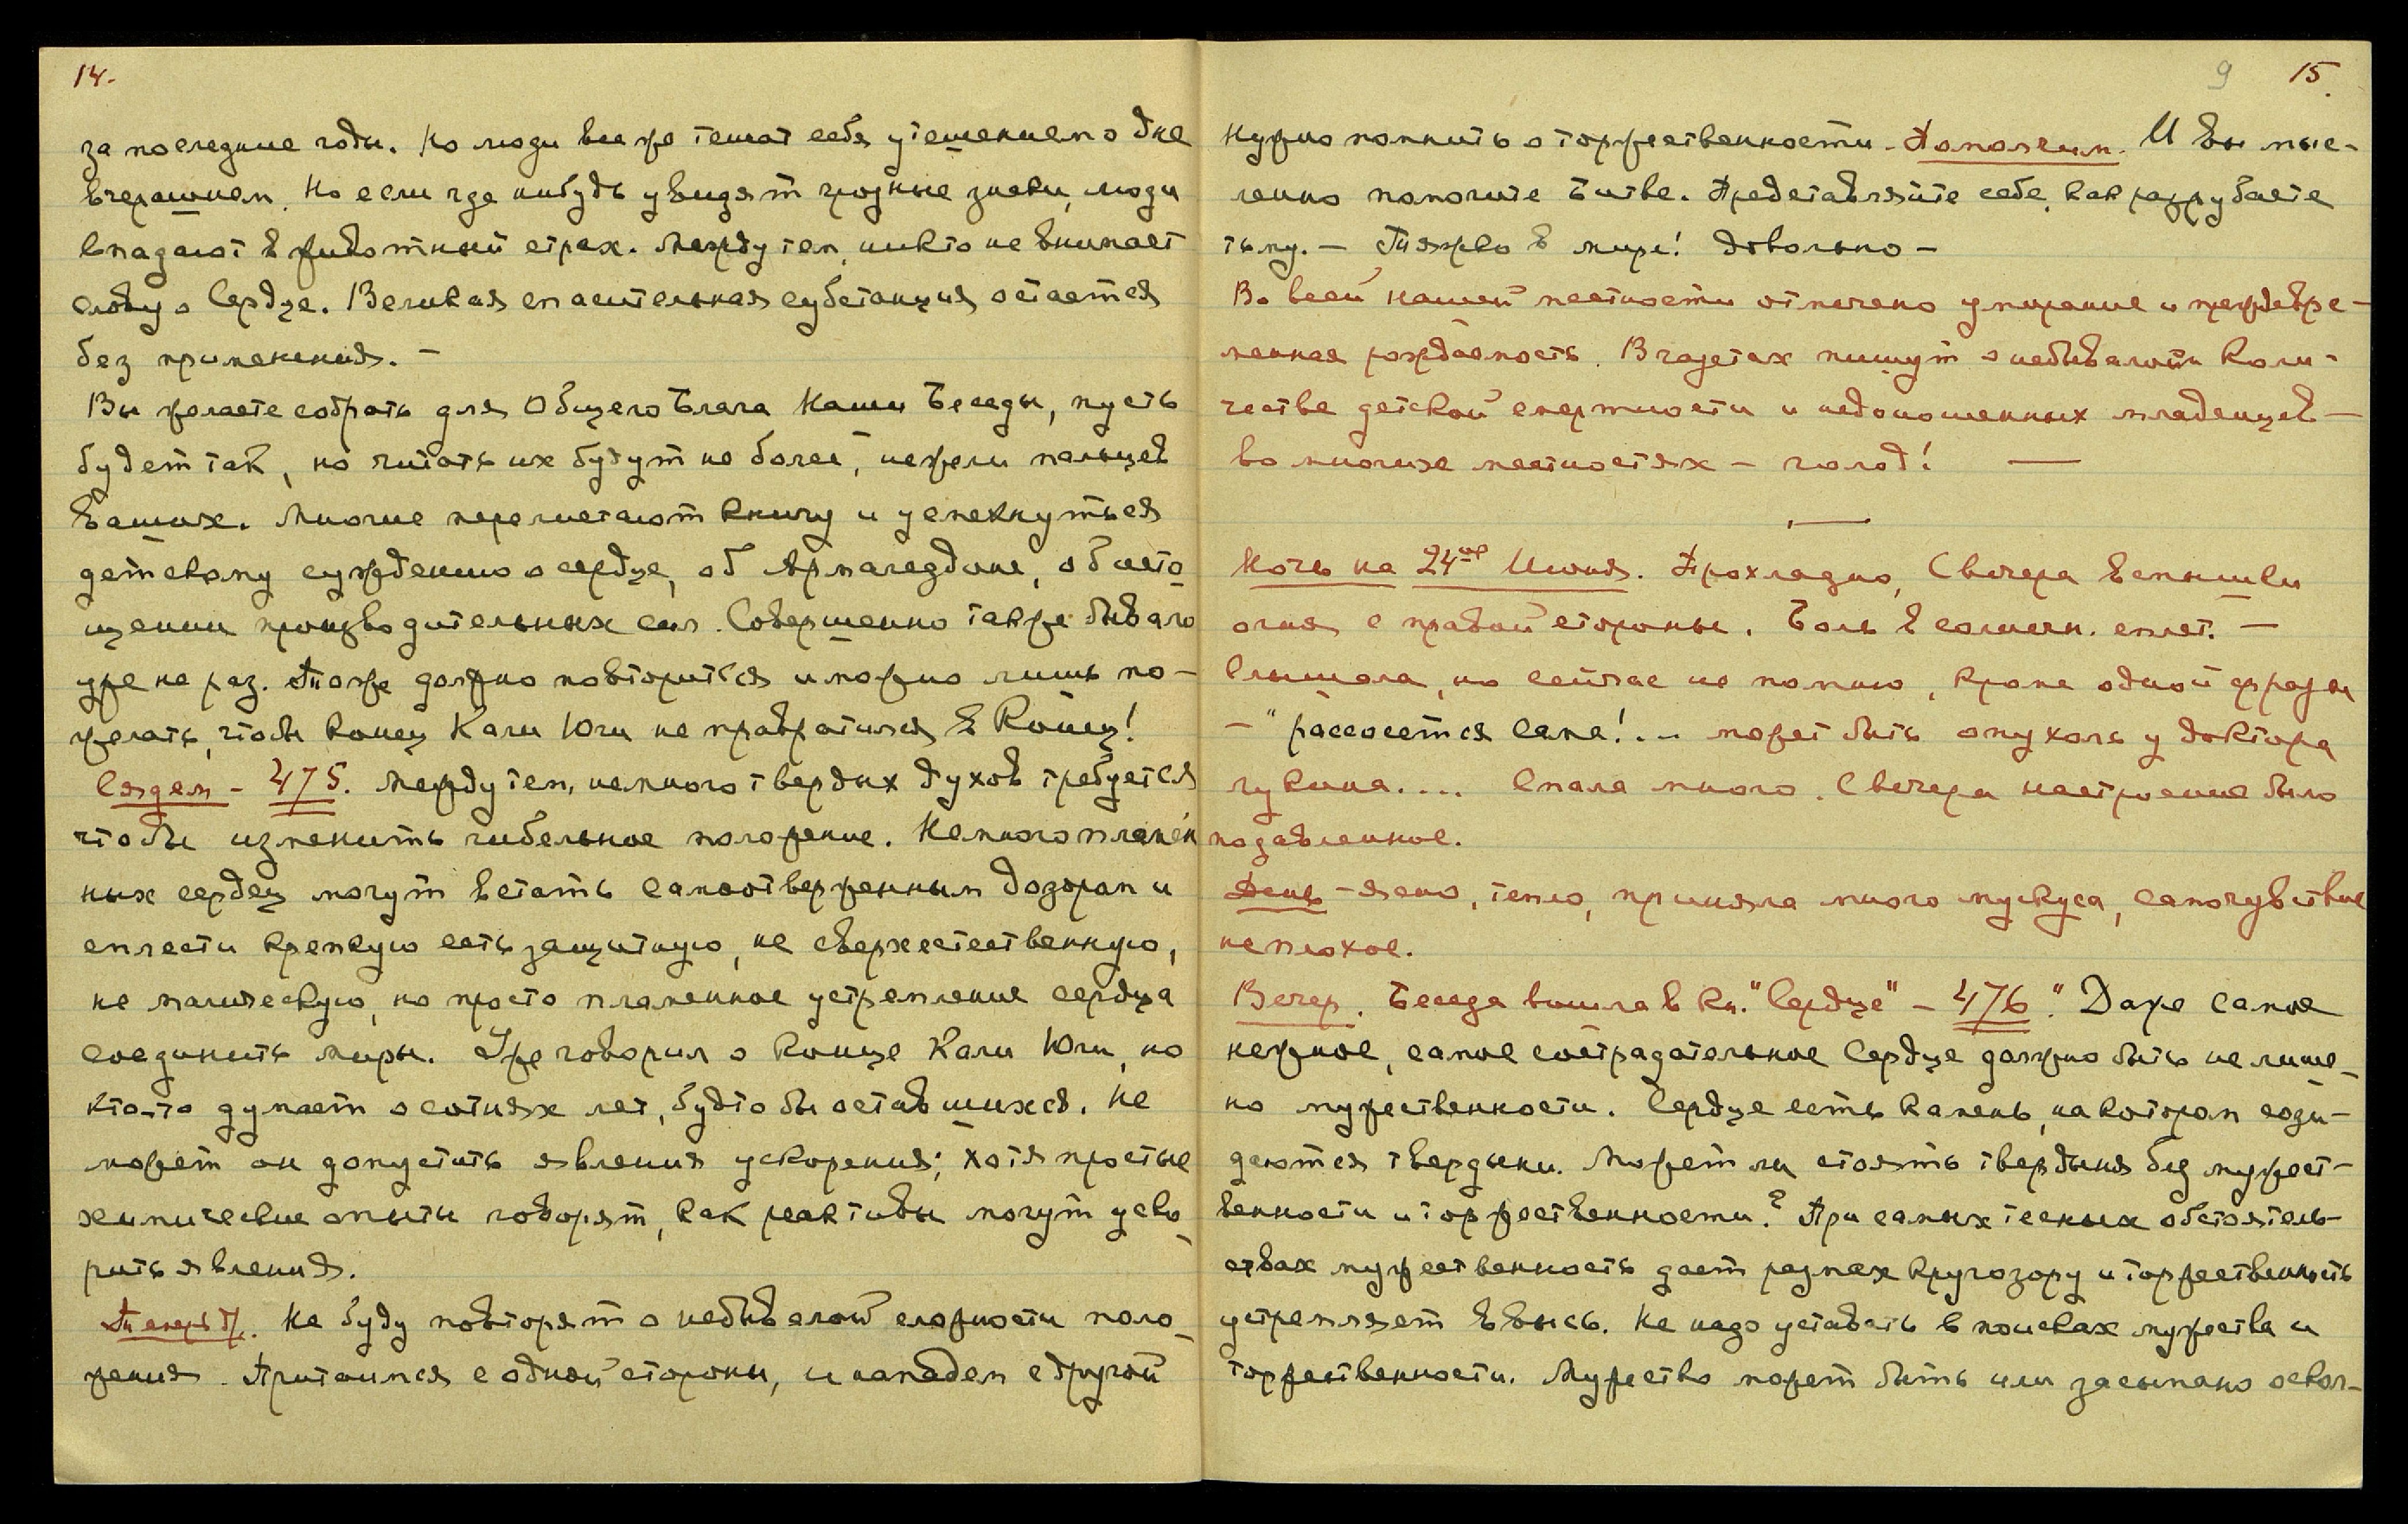 14.
за последние годы. Но люди все же тешат себя утешением о дне
вчерашнем. Но если где нибудь увидят грозные знаки, люди
впадают в животный страх. Между тем, никто не внимает
слову о Сердце. Великая спасительная субстанция остается
без применения. –
Вы желаете собрать для Общего Блага Наши Беседы, пусть
будет так, но читать их будут не более, нежели пальцев
Ваших. Многие перелистают книгу и усмехнуться
детскому суждению о сердце, об Армагеддоне, об исто-
щении производительных сил. Совершенно также бывало
уже не раз. Тоже должно повториться и можно лишь по-
желать, чтобы конец Кали Юги не превратился в Конец!
Сядем – 475. Между тем, немного твердых духов требуется
чтобы изменить гибельное положение. Немного пламен-
ных сердец могут встать самоотверженным дозором и
сплести крепкую сеть защитную, не сверхестественную,
не магическую, но просто пламенное устремление сердца
соединить миры. Уже говорил о конце Кали Юги, но
кто-то думает о сотнях лет, будто бы оставшихся. Не
может он допустить явления ускорения; хотя простые
химические опыты говорят, как реактивы могут уско-
рить явления.
Не буду повторят о небывалой сложности поло-
жения. Притаимся с одной стороны, и нападем с другой
9 15.
нужно помнить о торжественности. Помолчим. И Вы мыс-
ленно помогите Битве. Представляйте себе, как разрубаете
тьму. – Тяжко в мире! Довольно –
Во всей нашей местности отмечено умирание и преждевре-
менная рождаемость. В газетах пишут о небывалом коли-
честве детской смертности и недоношенных младенцев –
во многих местностях – голод! —
—
Ночь на 24ое Июня. Прохладно, С вечера вспышки
огня с правой стороны. Боль в солнечн. сплет. –
Слышала, но сейчас не помню, кроме одной фразы
– "рассосется сама!... может быть опухоль у доктора
Лукина.... Спала много. С вечера настроение было
подавленное.
День – ясно, тепло, приняла много мускуса, самочувствие
не плохое.
Вечер. Беседа вошла в кн. "Сердце" – 476." Даже самое
нежное, самое сострадательное Сердце должно быть не лише-
но мужественности. Сердце есть камень, на котором сози-
даются твердыни. Может ли стоять твердыня без мужест-
венности и торжественности? При самых тесных обстоятель-
ствах мужественность дает размах кругозору и торжественность
устремляет ввысь. Не надо уставать в поисках мужества и
торжественности. Мужество может быть или засыпано оскол-